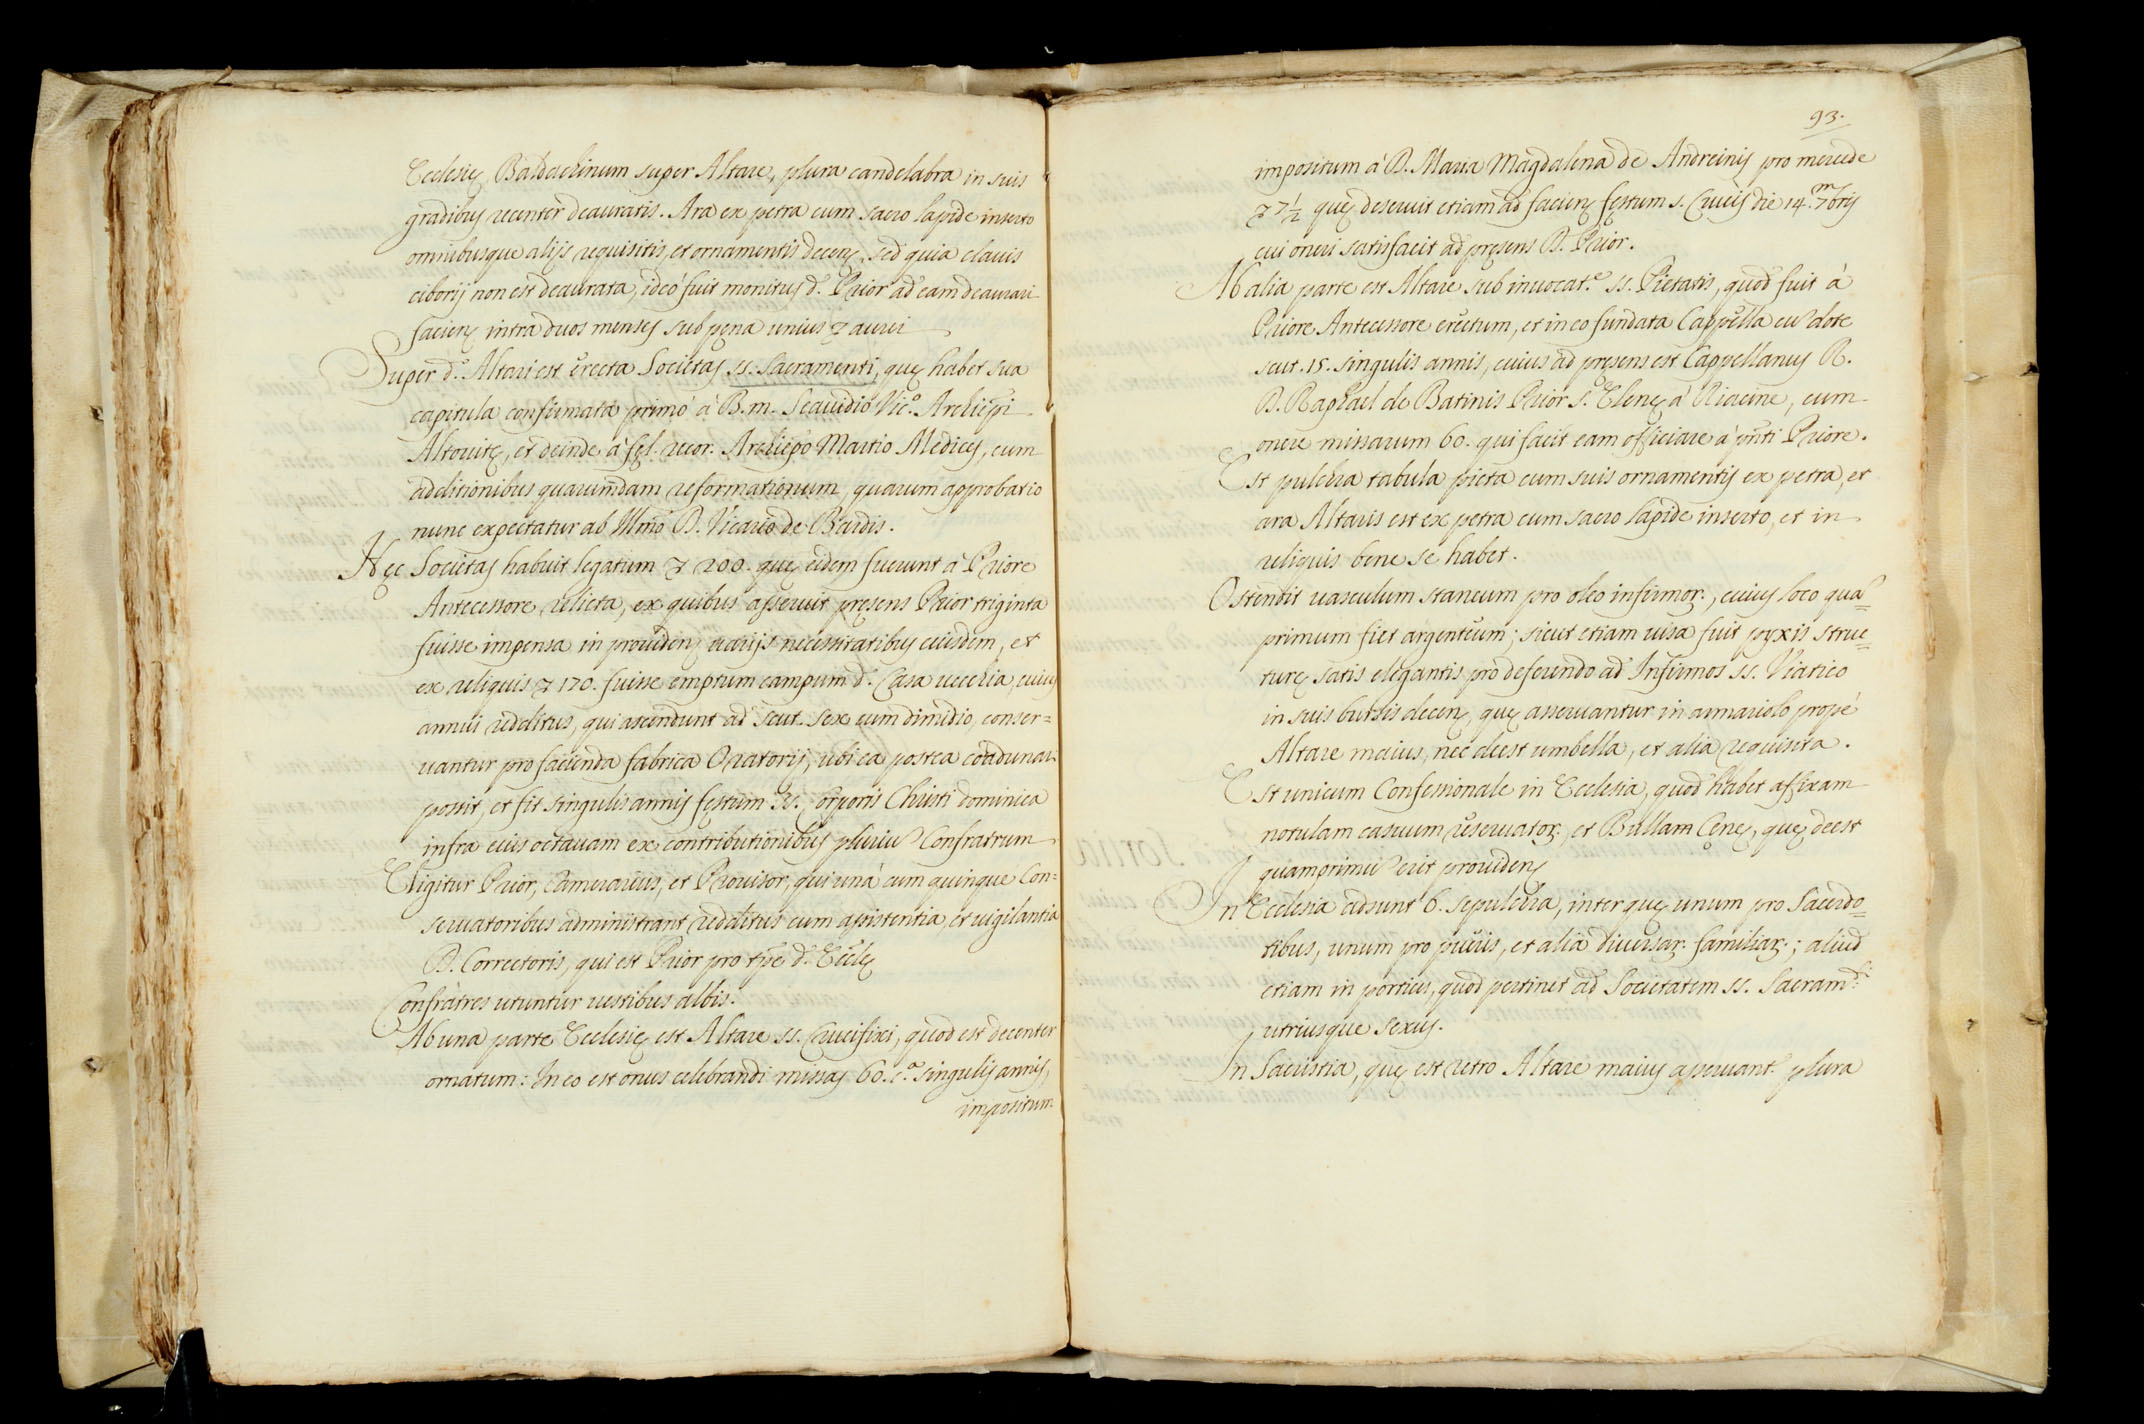 Ecclesię Baldachinum super Altare, plura candelabra in suis
gradibus recenter deauratis. Ara ex petra cum sacro lapide inserto
omnibusque alijs requisitis, et ornamentis decen., sed quia clauis
ciborij non est deaurata, ideò fuit monitus d.º Prior ad eam deaurari
facien. intra duos menses sub pena unius aurei
Super d.º Altari est erecta Societas ss. Sacramenti, quę habet sua
capitula confirmata primò à B. m. Vic.º Archiepi
Altouitę, et deinde à fęl. recor. Archiepo Martio Medices, cum
additionibus quarumdam reformationum, quarum approbatio
nunc expectatur ab Illmo D. Vicario de Bardis.
Hęc Societas habuit legatum 200. quę eidem fuerunt à Priore
Antecessore relicta, ex quibus asseruit pręsens Prior triginta
fuisse impensa in prouiden. uarijs necessitatibus eiusdem, et
ex reliquis 170. fuisse emptum campum d.º Casa uecchia, cuius
annui redditus, qui ascendunt ad scut. sex cum dimidio, conser=
uantur pro facienda fabrica Oratorij, ubi ea postea coadunari
possit, et fit singulis annis fęstum ss. Corporis Christi dominica
infra eius octauam ex contributionibus Confratrum
Eligitur Prior, Camerarius, et Prouisor, qui unà cum quinque Con=
seruatoribus administrant redditus cum assistentia, et uigilantia
D. Correctoris, qui est Prior pro tpe d.º Ecclę
Confratres utuntur uestibus albis.
Ab una parte Ecclesię est Altare ss. Crucifixi, quod est decenter
ornatum: In eo est onus celebrandi missas 60. c.ª singulis annis,
impositum
93.
impositum à D. Maria Magdalena de Andreinis pro mercede
7 1/2 quę deseruit etiam ad facien. fęstum s. Crucis die 14. 7mbris
cui oneri satisfacit ad pręsens D. Prior.
Ab alia parte est Altare sub inuocat.e ss. Pietatis, quod fuit à
Priore Antecessore erectum, et in eo fundata Cappella cu dote
scut. 15. singulis annis, cuius ad pręsens est Cappellanus R.
D. Raphael de Batinis Prior S. Elenę à Riccine, cum
onere missarum 60. qui facit eam officiare à pñti Priore.
Est pulchra tabula picta cum suis ornamentis ex petra, et
ara Altaris est ex petra cum sacro lapide inserto, et in
reliquis bene se habet.
Ostendit uasculum staneum pro oleo infirmor., cuius loco qua=
primum fiet argenteum; sicut etiam uisa fuit pyxis struc=
turę satis elegantis pro deferendo ad Infirmos ss. Viatico
in suis bursis decen., quę asseruantur in armariolo propè
Altare maius, nec deest umbella, et alia requisita.
Est unicum Confessionale in Ecclesia, quod habet affixam
notulam casuum reseruator., et Bullam Cęnę, quę deest
quamprimu erit prouiden.
In Ecclesia adsunt 6. sepulchra, inter quę unum pro Sacerdo=
tibus, unum pro pueris, et alia diuersar. familiar.; aliud
etiam in porticu, quod pertinet ad Societatem ss. Sacram.ti
utriusque sexus.
In Sacristia, quę est retro Altare maius asseruant.r plura